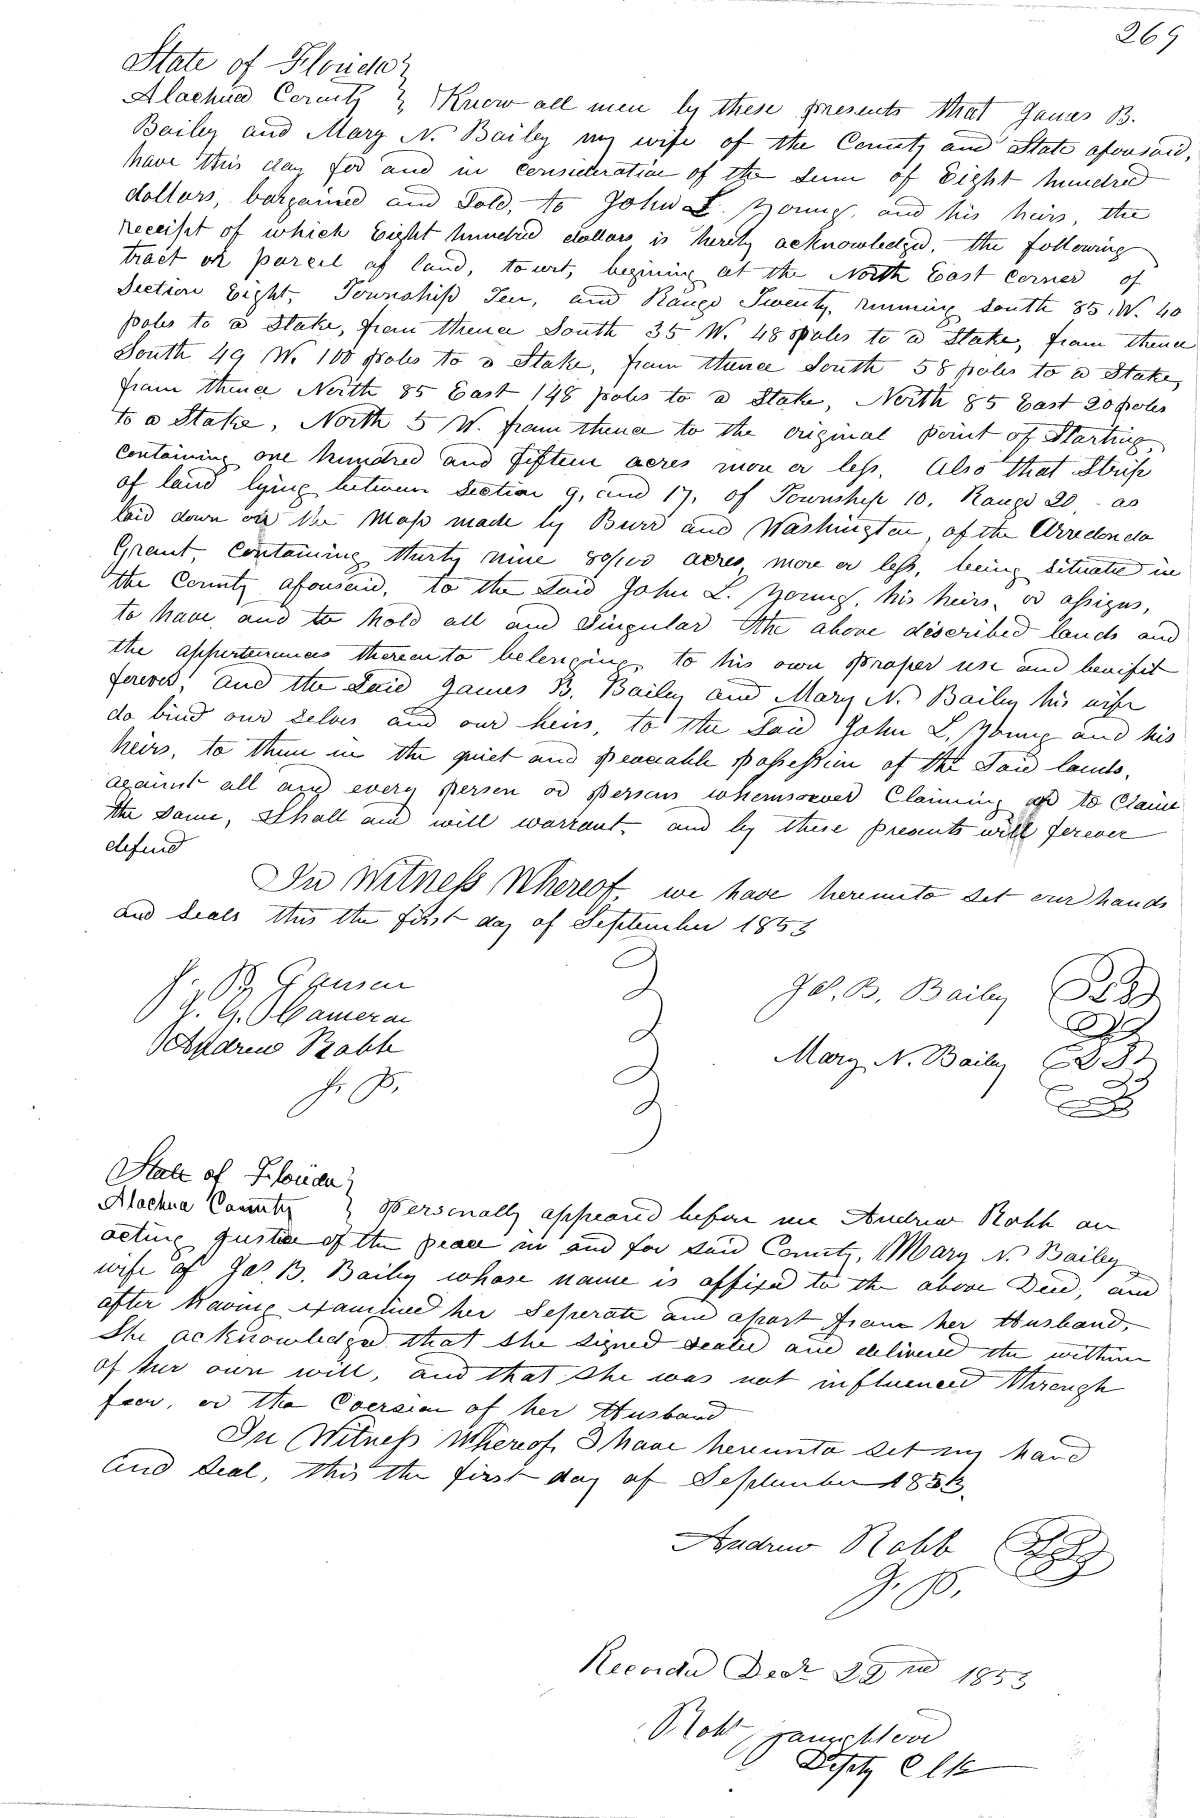 269
State of Florida
Alachua County } Know all men by these presents that James B.
Bailey and Mary N. Bailey my wife of the County and State aforesaid,
have this day for and in consideration of the sum of Eight hundred
dollars, bargained and Sold, to John L. Young, and his heirs, the
receipt of which Eight hundred dollars is hereby acknowledged, the following
tract or parcel of land, towit, begining at the North East corner of
Section Eight, Township Ten, and Range Twenty, running south 85 W. 40
poles to a Stake, from thence South 35 W. 48 poles to a Stake, from thence
South 49 W. 100 poles to a Stake, from thence South 58 poles to a Stake,
from thence North 85 East 148 poles to a Stake, North 85 East 20 poles
to a Stake, North 5 W. from thence to the original point of Starting,
containing one hundred and fifteen acres more or less. Also that Strip
of land lying between Section 9, and 17, of Township 10, Range 20, as
laid down on the Map made by Burr and Washington, of the Arredondo
Grant, containing thirty nine 80/100 acres, more or less, being situate in
the County aforesaid, to the Said John L. Young, his heirs, or assigns,
to have and to hold all and Singular the above described lands and
the appurtenances thereunto belonging, to his own proper use and benifit
forever, and the Said James B. Bailey and Mary N. Bailey his wife
do bind our selves and our heirs, to the Said John L. Young and his
heirs, to them in the quiet and peaceable possession of the Said lands,
against all and every person or persons whomsoever Claiming or to Claim
the Same, Shall and will warrant, and by these presents will forever
defend
In Witness Whereof, we have hereunto set our hands
and Seals this the first day of September 1853
Jas. B. Bailey
Cameron
Andrew Robb
Mary N. Bailey
J. P.
State of Florida
Alachua County } Personally appeared before me Andrew Robb an
acting Justice of the peace in and for said County, Mary N. Bailey
wife of Jas. B. Bailey whose name is affixed to the above Deed, and
after having examined her Seperate and apart from her Husband,
She acknowledged that she signed sealed and delivered the within
of her own will, and that she was not influenced through
fear, or the Coersion of her Husband
In Witness Whereof, I have hereunto set my hand
and Seal, this the first day of September 1853.
Andrew Robb
J. P.
Recorded Decr 22nd 1853
Robt
Depty Clk